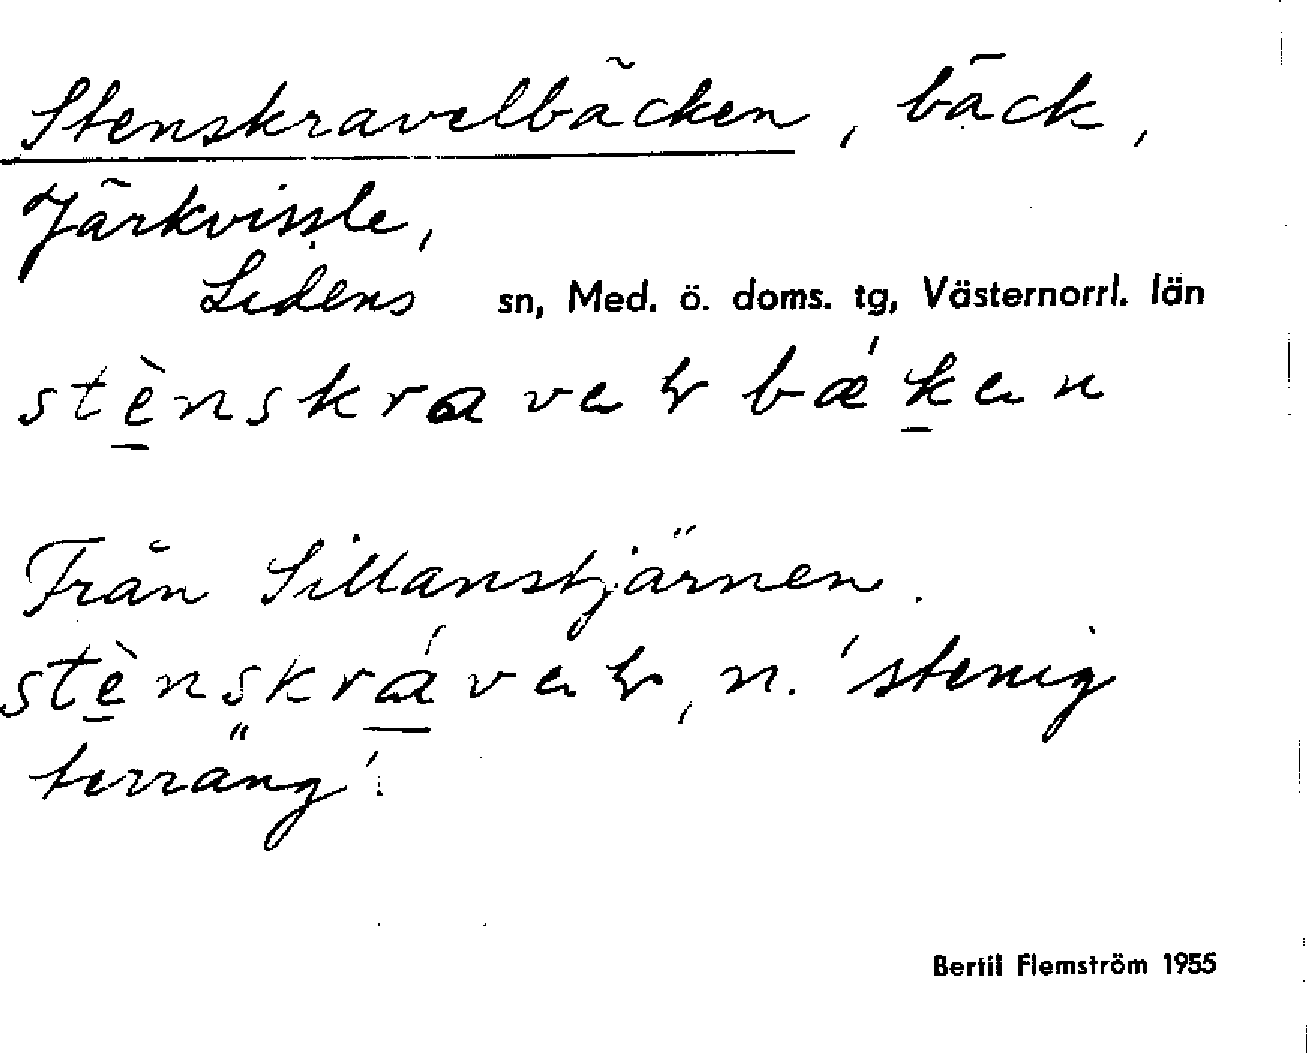 Stenskravelbäcken, bäck,
Järkvissle,
Lidens sn, Med. ö. doms. tg, Västernorrl. län
stè̱nskravaɽbǽḵan
Från Sillanstjärnen.
stè̱nskrá̱vaɽ, n. 'stenig
terräng'.
Bertil Flemström 1955